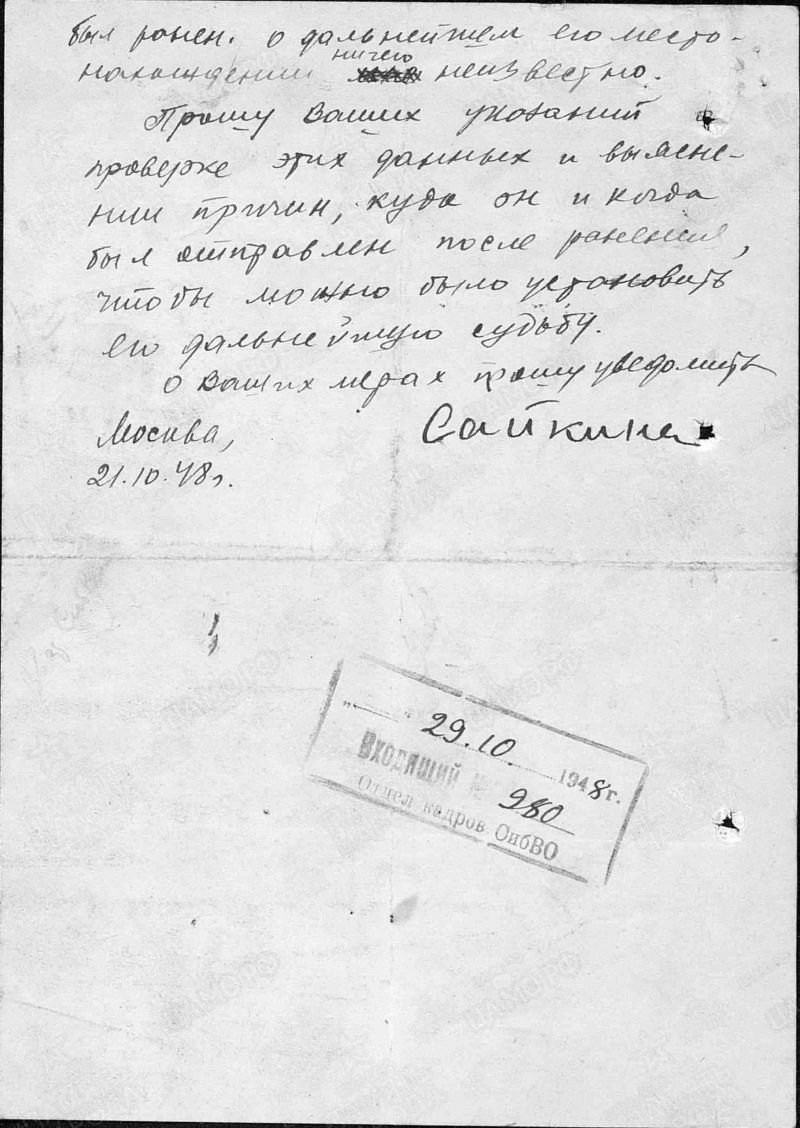 был ранен. о дальнейшем его место-
нахождении ничего неизвестно.
Прошу Ваших указаний
проверке этих данных и выясне-
нии причин, куда он и когда
был отправлен после ранения,
чтобы можно было установить
его дальнейшую судьбу.
О Ваших мерах прошу уведомить
Москва,
Сайкина
21.10.48г.
29.10. 1948г.
Входящий № 980
Отдел кадров СибВО